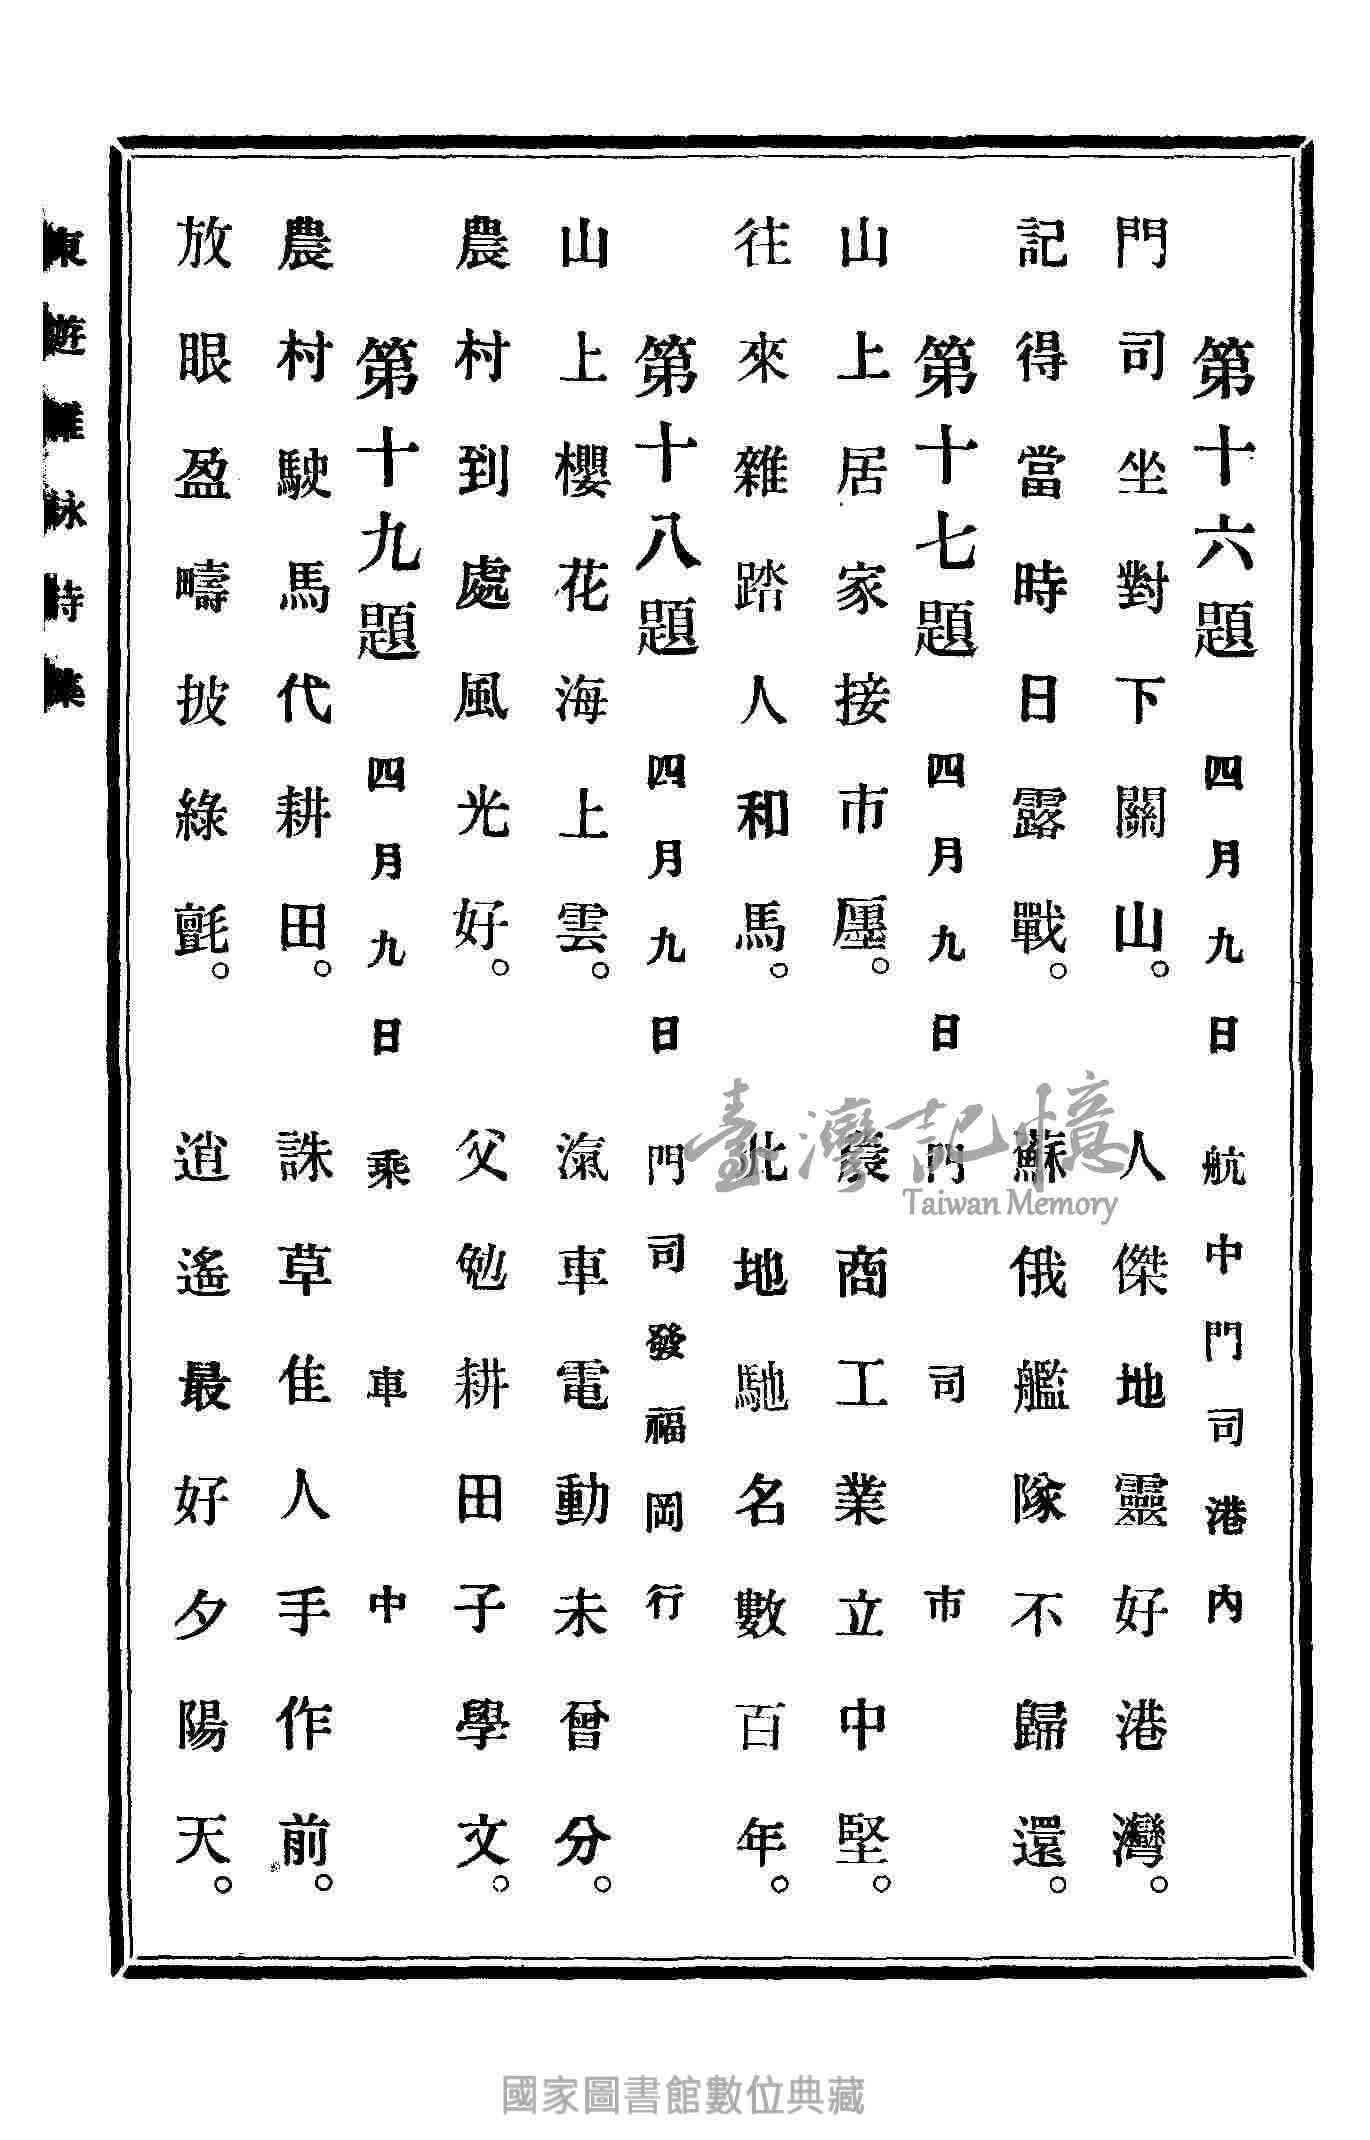 第十六題 四月九日 航中門司港內
門司坐對下關山。 人傑地靈好港灣。
記得當時日露戰。 蘇俄艦隊不歸還。
第十七題 四月九日 門司市
山上居家接市廛。 農商工業立中堅。
往來雜踏人和馬。 此地馳名數百年。
第十八題 四月九日 門司發福岡行
山上櫻花海上雲。 滊車電動未曾分。
農村到處風光好。 父勉耕田子學文。
第十九題 四月九日 乘車中
農村駛馬代耕田。 誅草隹人手作前。
放眼盈疇披綠氈。 逍遙最好夕陽天。
東遊雜詠詩集
臺灣記憶
Taiwan Memory
國家圖書館數位典藏